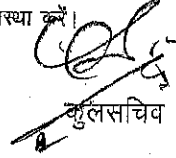 स्था करें।
कुलसचिव